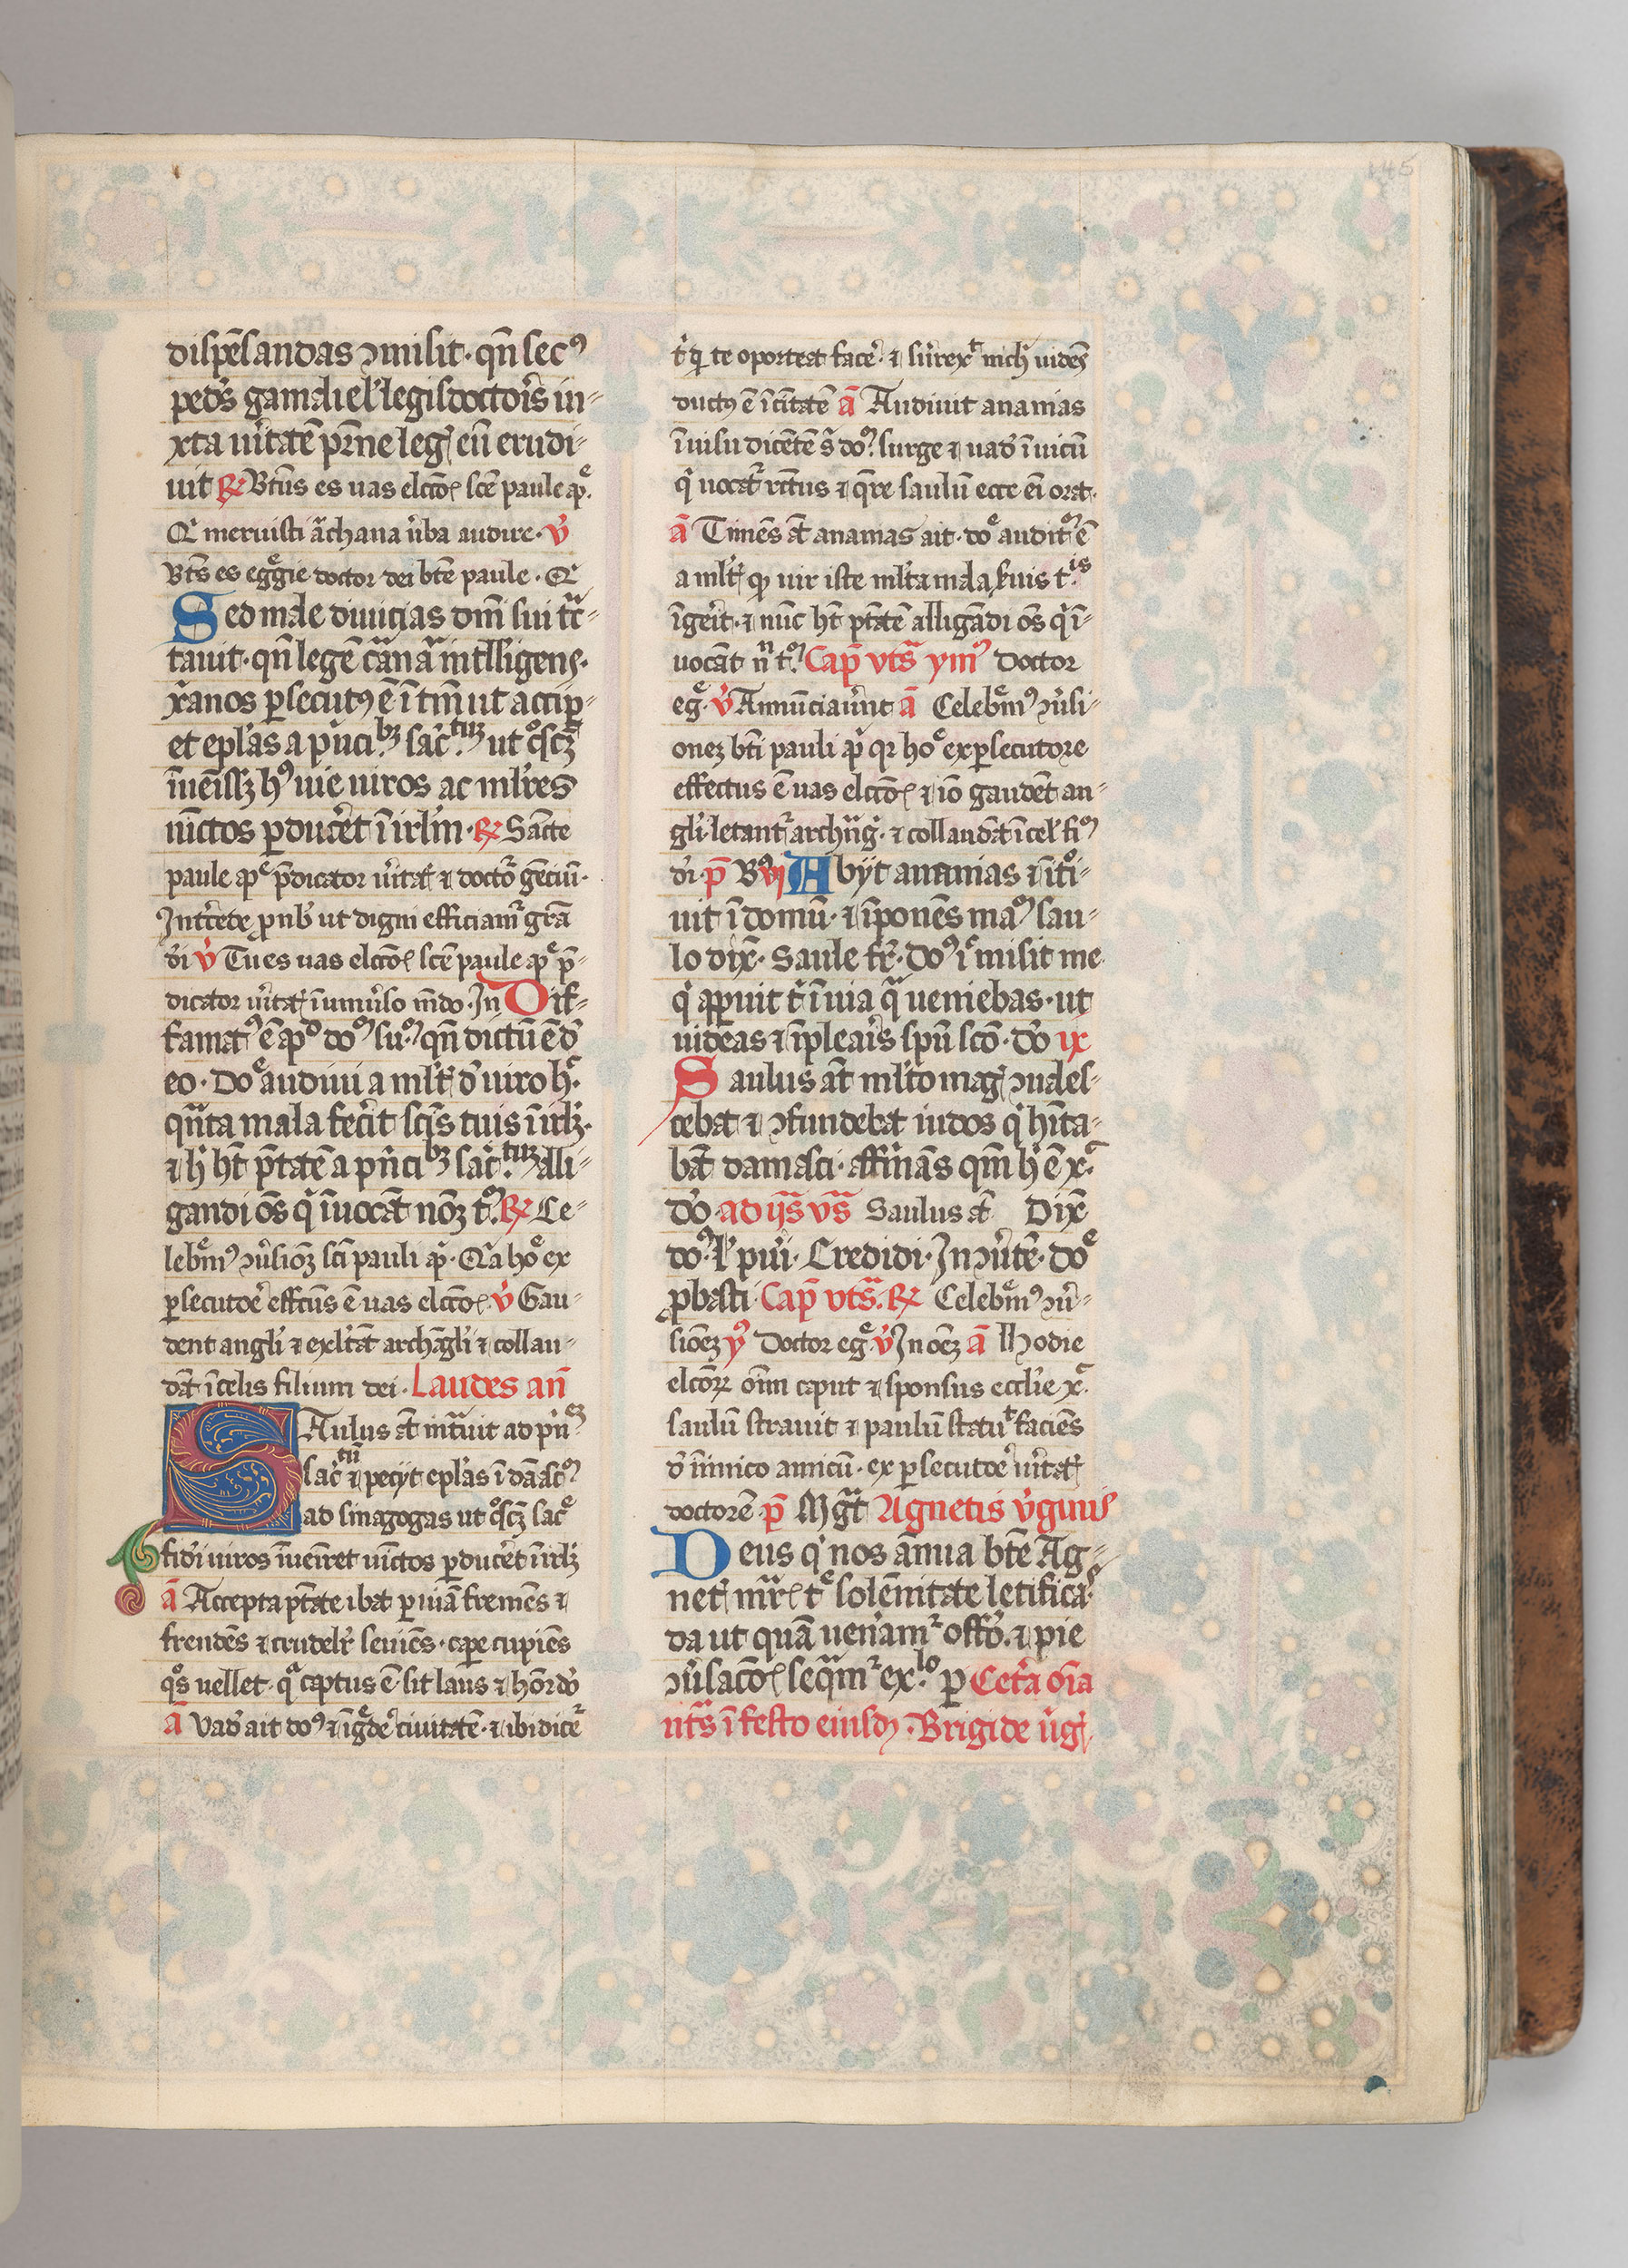 145
dispēsandas ꝯmisit · qn̄ secꝰ
ped's gamaliel' legisdoctor̄s iu-
xta u'itatē pr̄ne leg̨ eū erudi-
uit ℟ Bt̄us es uas elcc̄oꝭ sc̄e paule ap͛.
Qͥ meruisti archana u'ba audire · ꝟ
Bt̄s es egͤgie doctor dei bt̄e paule · Qͥ
Sed male diuicias dn̄i sui tͣc-
tauit · qn̄ legē cͣnaͣ intͤlligens ·
xͥanos ꝑsecutꝰ ē ī tm̄ ut accip̱-
et epl'as a pͥnciᵇꝫ sac'.ᵗᵘꝫ ut qͦscꝫ
īuēissꝫ hꝰ uie uiros ac ml'res
uīctos ꝑduce'et ī irl'm · ℟ Sāncte
paule apͤ p̄dicator u'itat̨ ⁊ doctōr gēciū ·
Int'cede ꝓ nob' ut digni efficiamͬ grā
d'i ꝟ Tu es uas elcc̄oꝭ sc̄e paule apͤ p̄-
dicator u'itat̨ ī uniu'so mͫdo · In Dif-
famatꝰ ē ap͛ doꝰ suꝰ. qn̄ dictū ē d'
eo · Doͤ audiui a ml't̨ d' uiro hͨ.
qn̄ta mala fec'it sc̄is tuis ī irl'.
⁊ h' ht̄ p̄tatē a pn̄ciᵇꝫ sac'.ᵗᵘꝫ ali-
gandi oēs qͥ īuocāt nōꝫ tꝰ. ℟ Ce-
lebͤmꝰ ꝯu'siōꝫ sc̄i pauli ap͛ · Qͥa hoͤ ex
ꝑsecutor̄e effc̄us ē uas elcc̄oꝭ · ꝟ Gau-
dent angl'i ⁊ exl'tāt archāgl'i ⁊ collau-
dāt ī celis filium dei · Laudes an̄
SAulus at̄ intͣuit ad pͥnͤꝫ
sac'ᵗᵘ ⁊ pecijt epl'as ī dāascꝰ
ad sinagogas ut qͦscꝫ sacͤ
fid'i uiros īuēiret uīctos ꝑduce'et ī irl'
ā Accepta p̄tate ibat ꝑ uiā fremēs ⁊
frendēs ⁊ crudelr̄ seuiēs · caꝑe cupiēs
qͦs uellet · qͣ captus ē · sit laus ⁊ honor do
ā Vad' ait doꝰ ⁊ īgͤde' ciuitatē · ⁊ ibi diceͬ
t' qͥ te oporteat face' · ⁊ surrexᵗ nich' uidēs
ductꝰ ē ī cītatē ā Audiuit ananias
ī uisu dicētē s' doꝰ. surge ⁊ uad' ī uicū
qͥ uocatͬ rc̄tus ⁊ qͣre saulū ecce eī orat ·
ā Timēs at̄ ananias ait · doͤ auditꝰ ē
a ml't̨ qꝫ uir iste ml'ta mala suis tⁱˢ.
īgēit · ⁊ nūc ht̄ p̄tatē alligādi oēs qͥ ī-
uocāt nⁿ tꝰ Cap̄ vtͣs ymꝰ Doctor
egͤ · ꝟ Annūciau'unt ā Celebͤmꝰ ꝯu'si-
oneꝫ bt̄i pauli ap͛ qr hoͤ ex ꝑsecutore
effectus ē uas elcc̄oꝭ ⁊ io gaudēt an-
gl'i · letantͬ archn̄g' · ⁊ collaudāt ī cel' fiꝰ
d'i · p̄ Bꝰ vj Abijt ananias ⁊ ītͦi-
uit ī domū · ⁊ īponēs maꝰ sau-
lo dix̄ · Saule fr̄ · Doꝰ iͨ misit me
qͥ apparuit t' ī uia qͣ ueniebas · ut
uideas ⁊ īplearis spū scō · Do ix
Saulus at̄ ml'to mag̨ ꝯuales-
cebat ⁊ ꝯfundebat iudos qͥ hīta-
bāt damasci · affirmās qm̄ h' ē xͨ.
Do · ad ijͣs vͣs Saulus at̄ Dix̄
doꝰ. L' pu'i · Credidi · In ꝯu'te · doͤ
ꝓbasti · Cap̄ vtͣs. ℟ Celebͤmꝰ ꝯu'-
sioēꝫ yꝰ Doctor egͤ · ꝟ In oēꝫ ā Hodie
elcōrꝫ oīm caput ⁊ sponsus eccl'ie xͨ.
saulū strauit ⁊ paulū statuᵗ faciēs
d' inimico amicū · ex ꝑsecutor̄e u'itat̨
doctorē p̄ Mgͣt Agnetis v'ginis
Deus qͥ nos ānua bt̄e Ag-
net̨ mr̄ꝭ tͤ solēnitate letificaˢ
da ut quā ueniamͬ offo. ⁊ pie
ꝯu'sacōꝭ seqͣmͬ ex.ˡᵒ ꝑ Cet'a oīa
utͣs ī festo eiusdꝫ · Brigide u'g̨